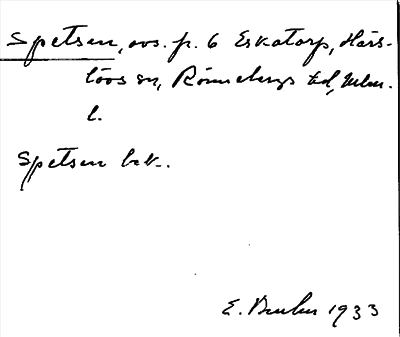 Spetsen, avs. p. 6 Eskatorp, Härs-
lövs sn, Rönnebergs hd, Mlm.
l.
Spetsen bek..
E. 1933